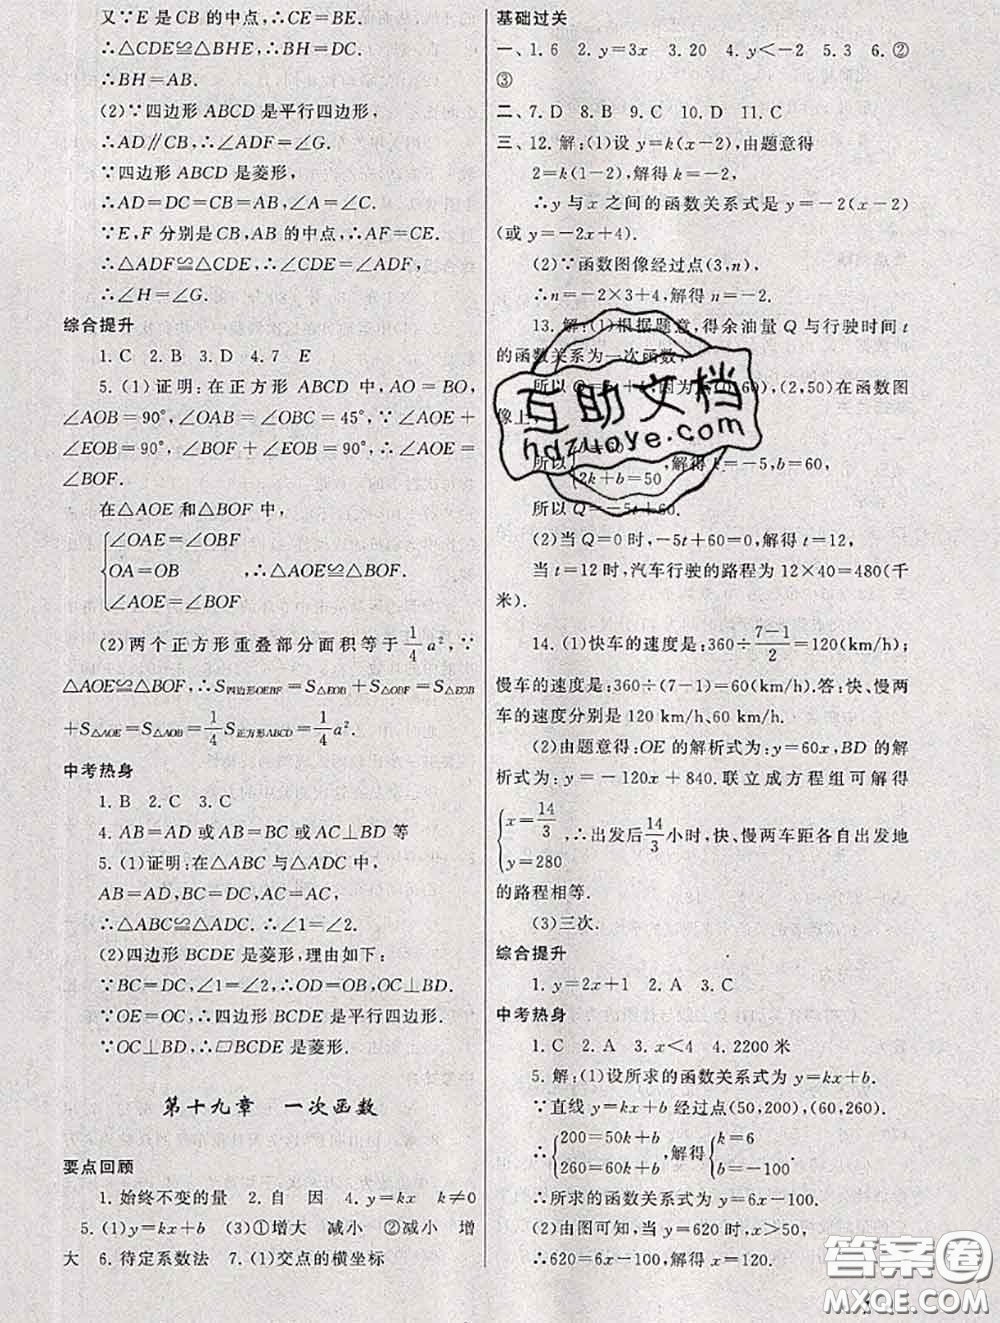 又∵E 是 CB 的中点,∴CE=BE.
∴△CDE≌△BHE,∴BH=DC.
∴BH=AB.
(2)∵四边形 ABCD 是平行四边形,
∴AD∥CB,∴∠ADF=∠G.
∵四边形 ABCD 是菱形,
∴AD=DC=CB=AB,∠A=∠C.
∵E,F 分别是 CB,AB 的中点,∴AF=CE.
∴△ADF≌△CDE,∴∠ADF=∠CDE,
∴∠H=∠G.
综合提升
1. C 2. B 3. D 4. 7 E
5. (1)证明:在正方形 ABCD 中,AO=BO,
∠AOB=90°,∠OAB=∠OBC=45°,∵∠AOE+
∠EOB=90°,∠BOF+∠EOB=90°,∴∠AOE=
∠BOF.
在△AOE 和△BOF 中,
{∠OAE=∠OBF
OA=OB ,∴△AOE≌△BOF.
∠AOE=∠BOF
(2)两个正方形重叠部分面积等于 1/4 a²,∵
△AOE≌△BOF,∴S四边形OEBF=S△EOB+S△OBF=S△EOB
+S△AOE=S△AOB=1/4 S正方形ABCD=1/4 a².
中考热身
1. B 2. C 3. C
4. AB=AD 或 AB=BC 或 AC⊥BD 等
5. (1)证明:在△ABC 与△ADC 中,
AB=AD,BC=DC,AC=AC,
∴△ABC≌△ADC.∴∠1=∠2.
(2)四边形 BCDE 是菱形,理由如下:
∵BC=DC,∠1=∠2,∴OD=OB,OC⊥BD.
∵OE=OC,∴四边形 BCDE 是平行四边形.
∵OC⊥BD,∴▱BCDE 是菱形.
第十九章 一次函数
要点回顾
1. 始终不变的量 2. 自 因 4. y=kx k≠0
5. (1)y=kx+b (3)①增大 减小 ②减小 增
大 6. 待定系数法 7. (1)交点的横坐标
基础过关
一、1. 6 2. y=3x 3. 20 4. y<-2 5. 3 6. ②
③
二、7. D 8. B 9. C 10. D 11. C
三、12. 解:(1)设 y=k(x-2),由题意得
2=k(1-2),解得 k=-2,
∴y 与 x 之间的函数关系式是 y=-2(x-2)
(或 y=-2x+4).
(2)∵函数图像经过点(3,n),
∴n=-2×3+4,解得 n=-2.
13. 解:(1)根据题意,得余油量 Q 与行驶时间 t
的函数关系为一次函数,
所以 ,(2,50)在函数图
像上,
所以 2k+b=50 ,解得 k=-5,b=60,
所以 Q=-5t+60.
(2)当 Q=0 时,-5t+60=0,解得 t=12,
当 t=12 时,汽车行驶的路程为 12×40=480(千
米).
14. (1)快车的速度是:360÷(7-1)/2=120(km/h),
慢车的速度是:360÷(7-1)=60(km/h).答:快、慢两
车的速度分别是 120 km/h、60 km/h.
(2)由题意得:OE 的解析式为:y=60x,BD 的解
析式为:y=-120x+840.联立成方程组可解得
{x=14/3
y=280 ,∴出发后 14/3 小时,快、慢两车距各自出发地
的路程相等.
(3)三次.
综合提升
1. y=2x+1 2. A 3. C
中考热身
1. C 2. A 3. x<4 4. 2200 米
5. 解:(1)设所求的函数关系式为 y=kx+b.
∵直线 y=kx+b 经过点(50,200),(60,260).
∴{200=50k+b 260=60k+b ,解得{k=6 b=-100.
∴所求的函数关系式为 y=6x-100.
(2)由图可知,当 y=620 时,x>50,
∴620=6x-100,解得 x=120.
互助文档
hdzuoye.com
答案圈
MXQE.COM